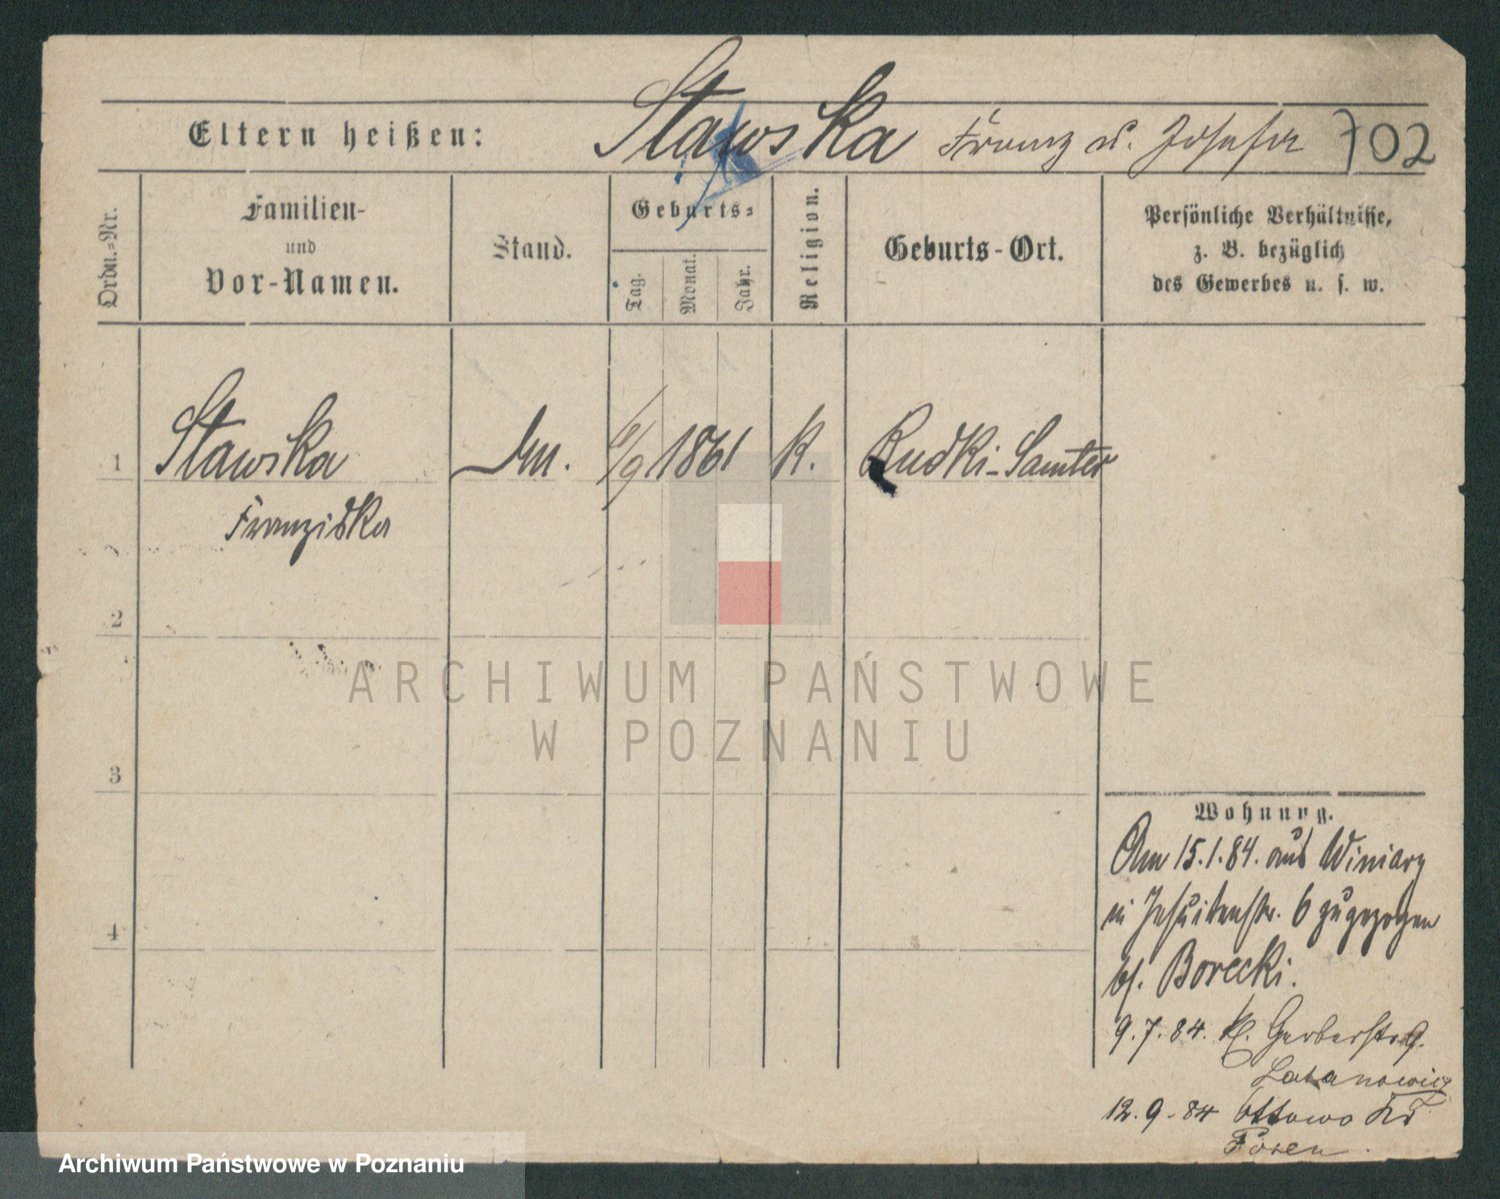 Eltern heißen: Stawska Franz u. Josefa 702
Ordn.=Nr.
Familien-
und
Vor-Namen.
Stand.
Geburts=
Tag.
Monat.
Jahr.
Religion.
Geburts-Ort.
Persönliche Verhältnisse,
z. B. bezüglich
des Gewerbes u. s. w.
1 Stawska 1861 K. Rudki-Samter
Franziska
2
3
4
ARCHIWUM PAŃSTWOWE
W POZNANIU
Wohnung.
Am 15.1.84. aus Winiary
in Jesuitenstr. 6 zugezogen
bf. Borecki.
9.7.84. Gerberstr 9.
12.9.84
Posen.
Archiwum Państwowe w Poznaniu